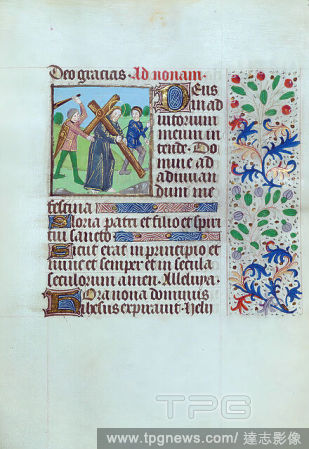 Deo gracias. Ad nonam.
Deus
in ad
iutorium
meum in
tende. Do
mine ad
adiuvan
dum me
festina
Gloria patri et filio et spiri
tui sancto.
Sicut erat in principio et
nunc et semper et in secula
seculorum amen. Alleluya.
Hora nona dominus
ihesus expiravit. Hely
TPG
www.tpgnews.com/ 達志影像